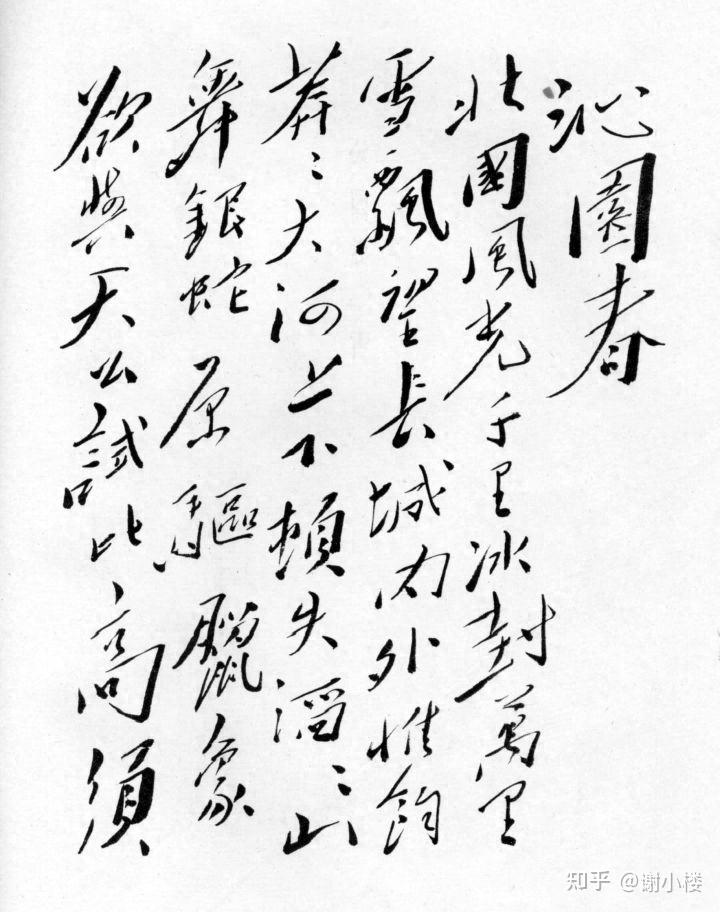 沁園春
北國風光千里冰封萬里
雪飄望長城内外惟餘
莽〻大河上下頓失滔〻山
舞銀蛇原驅臘象
欲與天公試比高須
知乎 @谢小楼